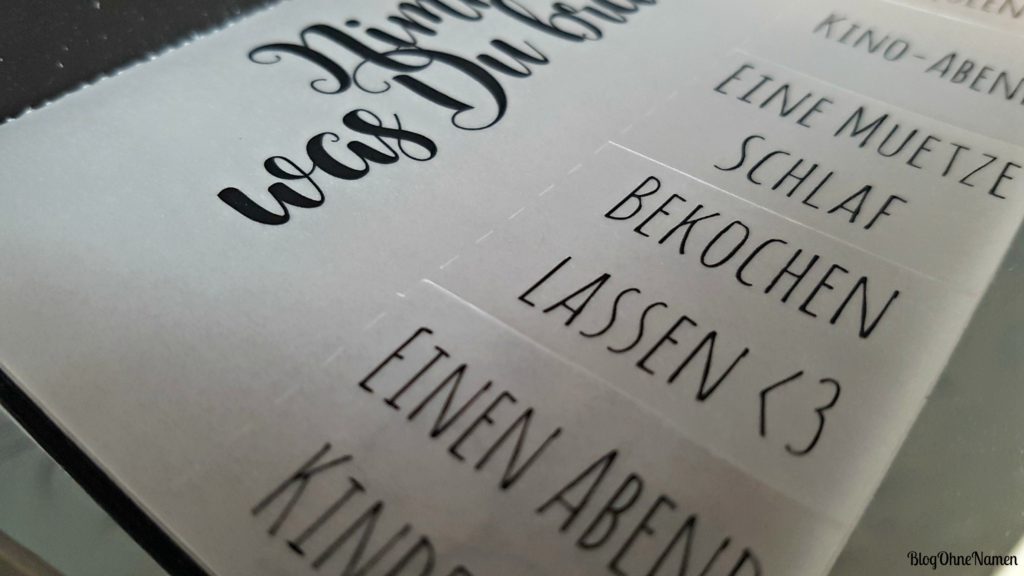 was Du
KINO-ABEN
EINE MUETZE
SCHLAF
BEKOCHEN
LASSEN <3
EINEN ABEND
BlogOhneNamen